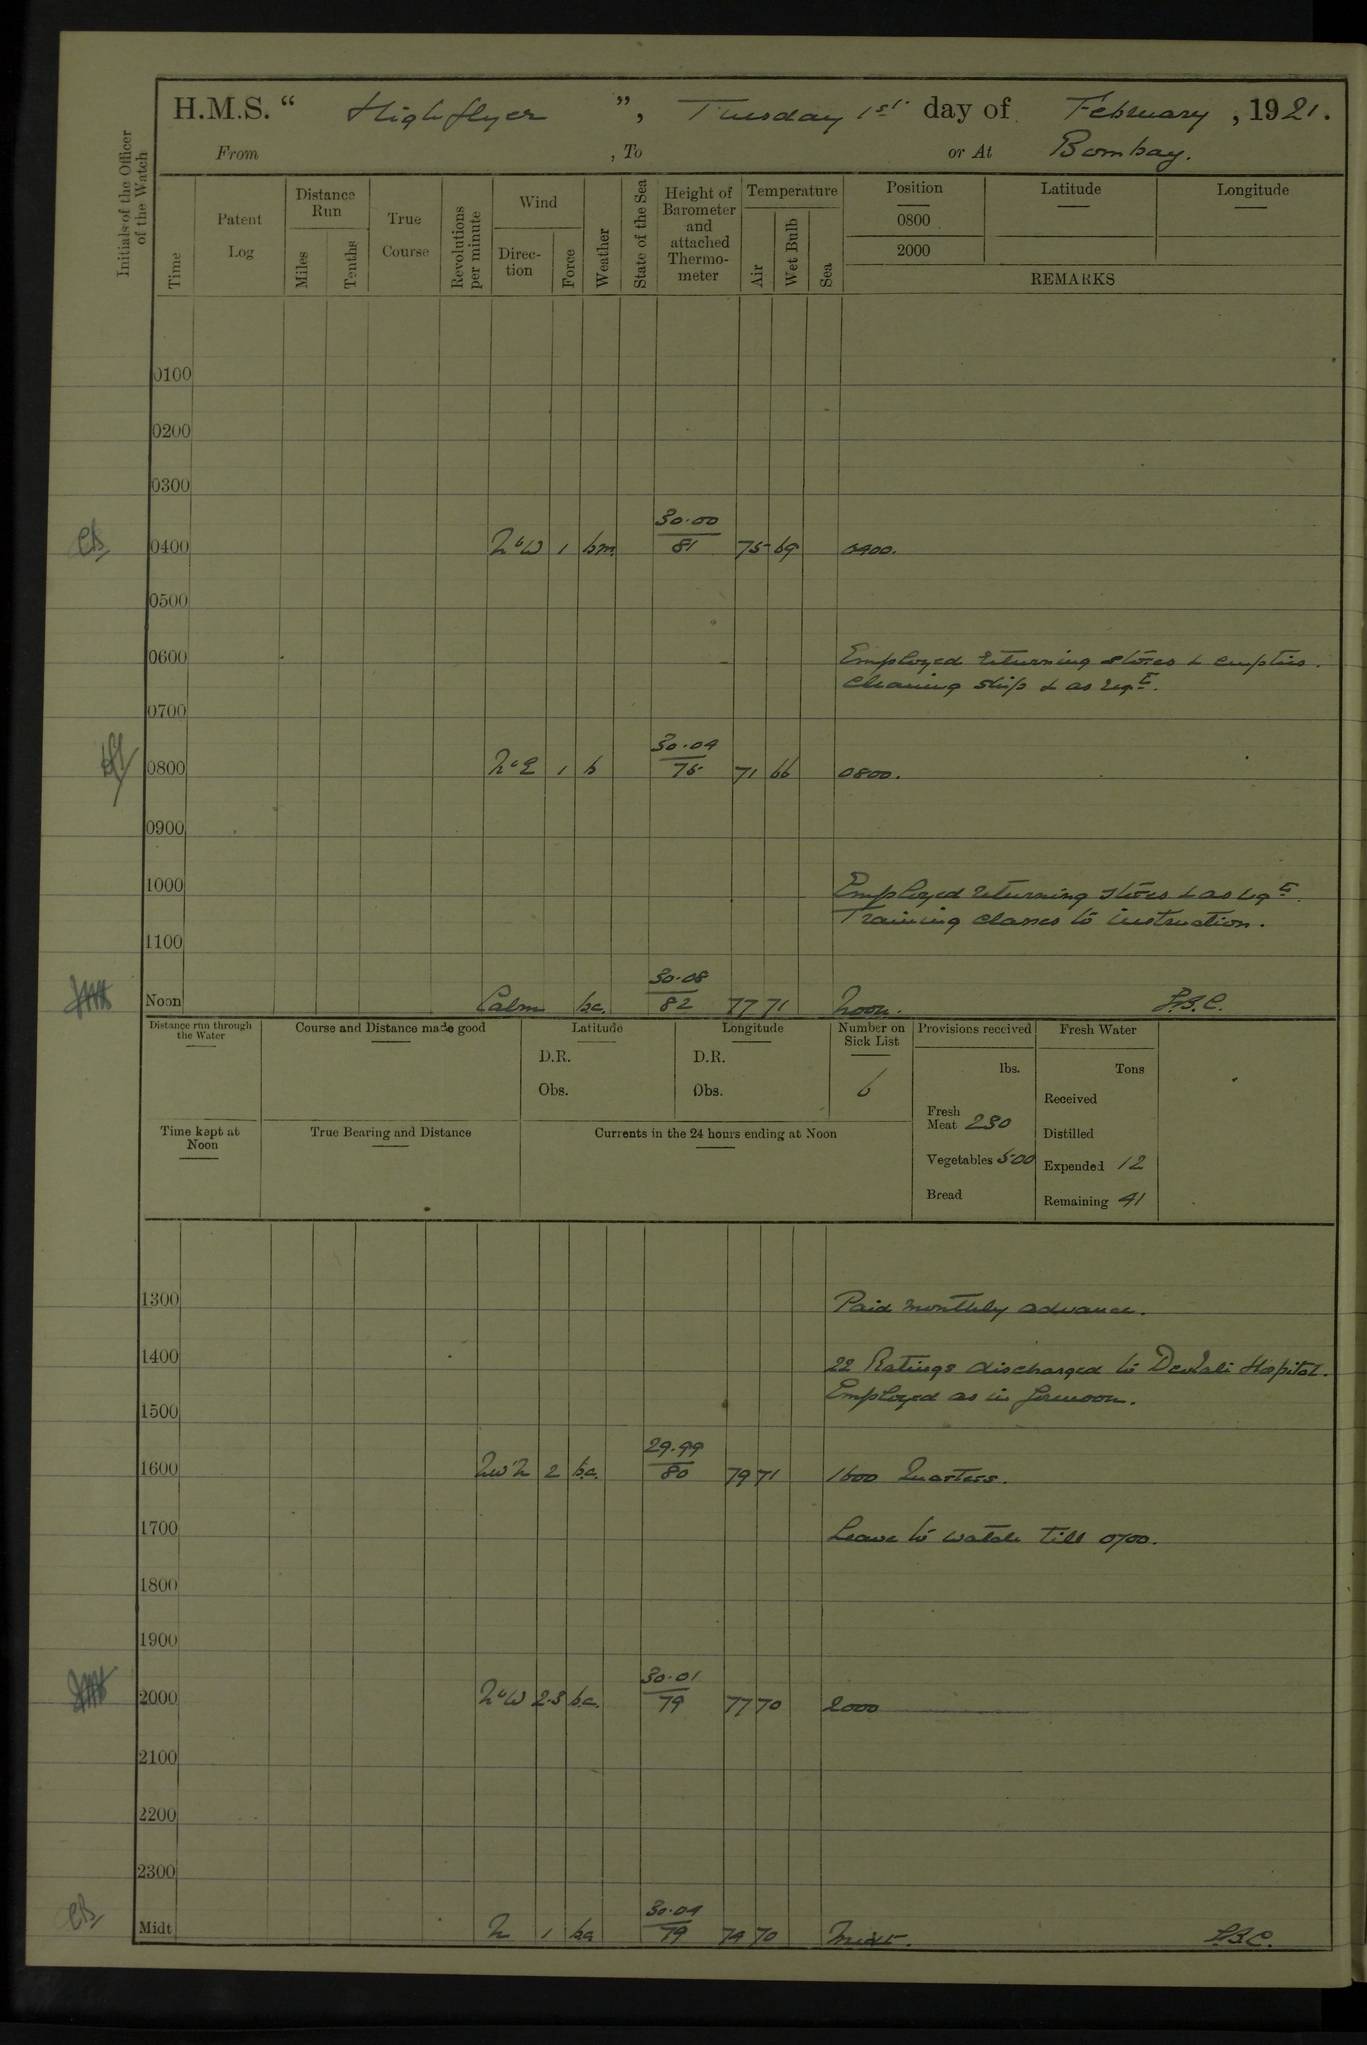 H.M.S. “ Highflyer ”, Tuesday 1st day of February, 1921.
From , To or At Bombay.
Initials of the Officer of the Watch
Time
Patent Log
Distance Run
Miles
Tenths
True Course
Revolutions per minute
Wind
Direction
Force
Weather
State of the Sea
Height of Barometer and attached Thermometer
Temperature
Air
Wet Bulb
Sea
Position Latitude Longitude
0800
2000
REMARKS
0100
0200
0300
0400 NbW 1 bm 30.00 81 75 69 0400.
0500
0600 Employed returning stores & empties.
Cleaning ship & as reqd.
0700
0800 NbE 1 b 30.04 75 71 66 0800.
0900
1000 Employed returning stores & as reqd.
Training classes to instruction.
1100
Noon Calm bc. 30.08 82 77 71 Noon.
Distance run through the Water
Course and Distance made good
Latitude
D.R.
Obs.
Longitude
D.R.
Obs.
Number on Sick List
6
Provisions received
lbs.
Fresh Meat 230
Vegetables 500
Bread
Fresh Water
Tons
Received
Distilled
Expended 12
Remaining 41
Time kept at Noon
True Bearing and Distance
Currents in the 24 hours ending at Noon
1300 Paid monthly advance.
1400 22 Ratings discharged to Deolali Hospital.
Employed as in forenoon.
1500
1600 NW'N 2 bc. 29.99 80 79 71 1600 Quarters.
1700 Leave to watch till 0700.
1800
1900
2000 NbW 2.3 bc. 30.01 79 77 70 2000
2100
2200
2300
Midt N 1 bc 30.04 79 74 70 Midt.